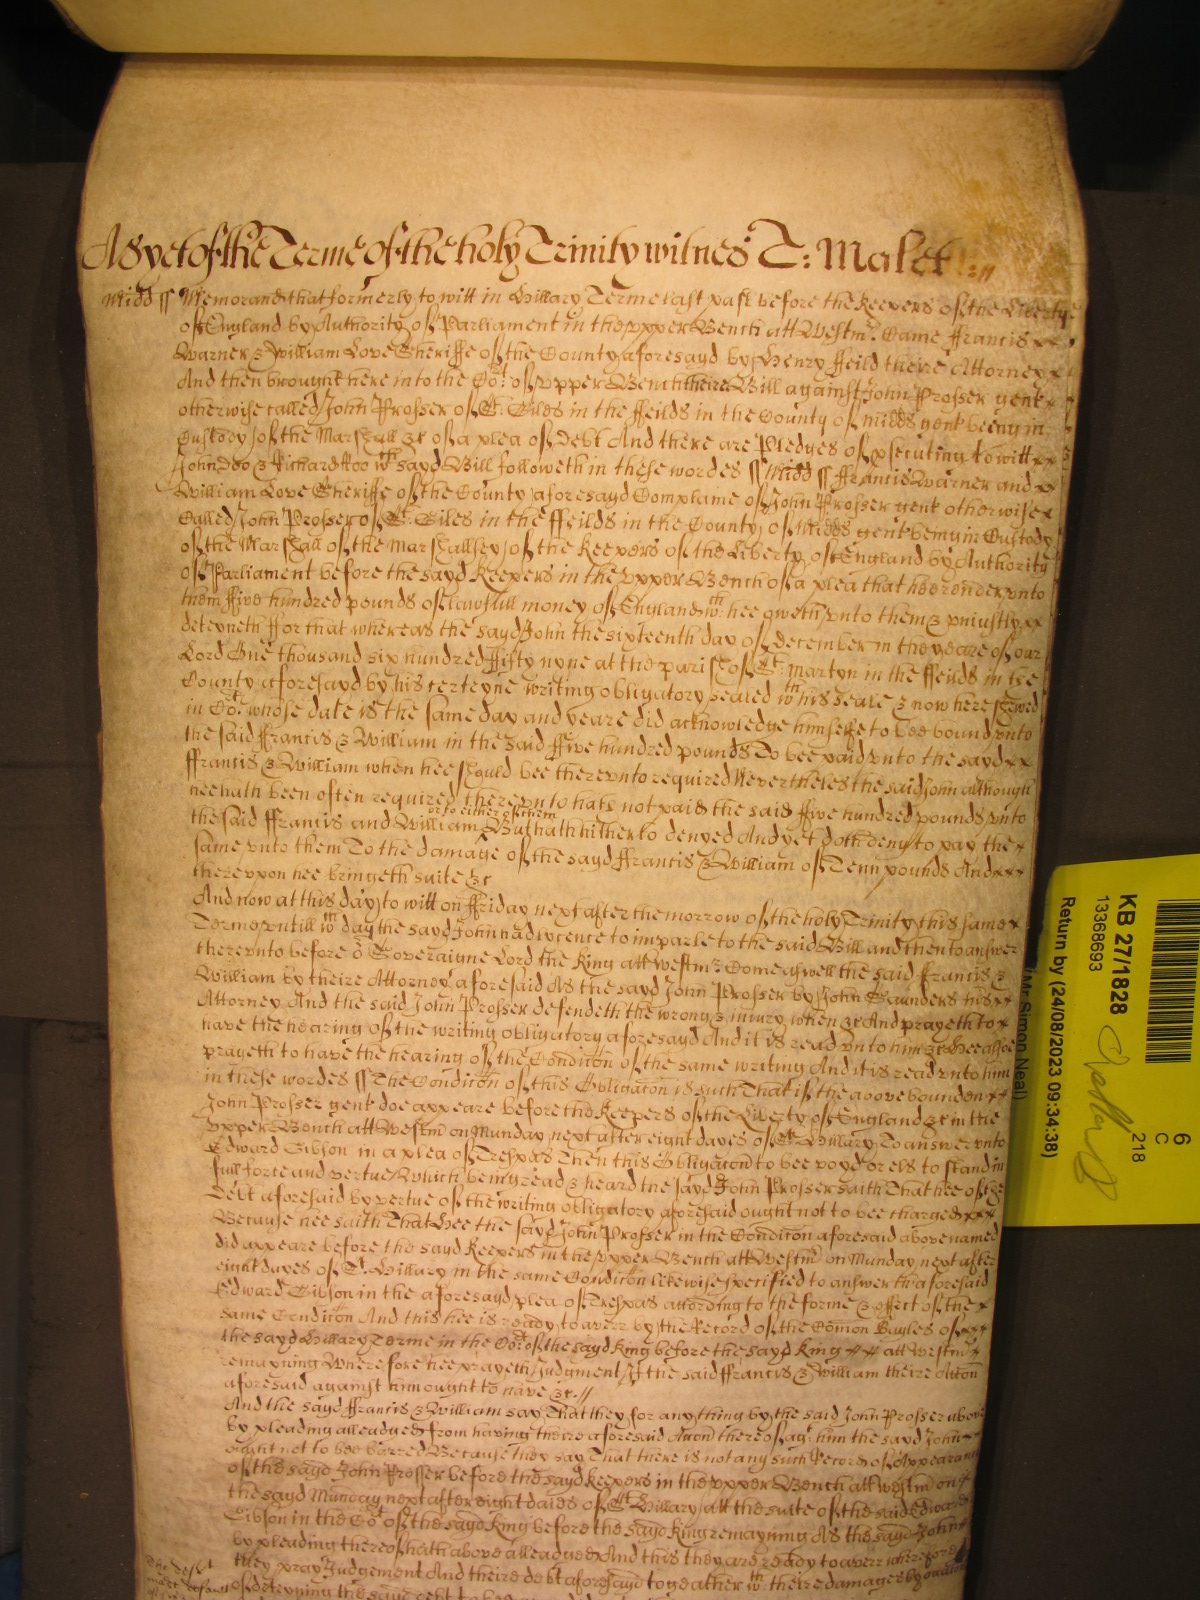 As yet of the Terme of the holy Trinity witnes T: Malet
Midd ss Memorand that formerly to witt in Hillary Terme last past before the Keepers of the Liberty
of England by Authority of Parliament in the vpper Bench att Westmr. Came ffrancis
Warner & William Love Sheriffe of the County aforesayd by Henry ffeild theire Attorney
And then brought here into the Cort. of vpper Bench theire Bill against John Prosser gent
otherwise called John Prosser of St. Giles in the ffeilds in the County of Midds gent beeng in
Custody of the Marshall &c of a plea of Debt And there are Pledges of psecuting to witt
John Doo & Richard Roo wch sayd Bill followeth in these wordes ss Midd ss ffrancis Warner and
William Love Sheriffe of the County aforesayd Complaine of John Prosser gent otherwise
Called John Prosser of St. Giles in the ffeilds in the County of Midds gent being in Custody
of the Marshall of the Marshallsey of the Keepers of the Liberty of England by Authority
of Parliament before the sayd Keepers in the vpper Bench of a plea that hee render vnto
them ffive hundred pounds of lawfull money of England wch. hee oweth vnto them & vniustly
deteyneth ffor that whereas the sayd John the sixteenth day of December in the yeare of our
Lord One thousand six hundred ffifty nyne at the parish of St. Martyn in the ffeilds in the
County aforesayd by his certeyne writing obligatory sealed wth his seale & now here shewed
in Cort. whose date is the same day and yeare did acknowledge himselfe to bee bound vnto
the said ffrancis & William in the said ffive hundred pounds To bee paid vnto the sayd
ffrancis & William when hee should bee therevnto required Neverthelesse the said John although
hee hath been often required therevnto hath not paid the said ffive hundred pounds vnto
the said ffrancis and William or to either of them But hath hitherto denyed And yet doth deny to pay the
same vnto them To the damage of the sayd ffrancis & William of Tenn pounds And
therevpon hee bringeth suite &c
And now at this day to witt on ffriday next after the morrow of the holy Trinity this same
Terme vntill wch day the sayd John had lycence to imparle to the said Bill and then to answer
therevnto before or Soveraigne Lord the King att Westmr. Come aswell the said ffrancis &
William by theire Attorney aforesaid As the sayd John Prosser by John Saunders his
Attorney And the said John Prosser defendeth the wrong & iniury when &c And prayeth to
have the hearing of the writing obligatory aforesayd And it is read vnto him &c Hee alsoe
prayeth to have the hearing of the Condicon of the same writing And it is read vnto him
in these wordes ss The Condicon of this Obligacon is such That if the above bounden
John Prosser gent doe appeare before the Keepers of the Liberty of England &c in the
vpper Bench att Westmr on Munday next after eight dayes of St Hillary To answer vnto
Edward Gibson in a plea of Trespas Then this Obligacon to bee voyd or els to stand in
full force and vertue Which being read & heard the sayd John Prosser saith That hee of the
Debt aforesaid by vertue of the writing obligatory aforesaid ought not to bee charged
Because hee saith That Hee the sayd John Prosser in the Condicon aforesaid above named
did appeare before the sayd Keepers in the vpper Bench att Westmr on Munday next after
eight dayes of St. Hillary in the same Condicon likewise specified to answer th aforesaid
Edward Gibson in the aforesayd plea of Trespas according to the forme & effect of the
same Condicon And this hee is ready to averr by the Record of the Comon Bayles of
the sayd Hillary Terme in the Cort of the sayd King before the sayd King att Westmr
remayning Wherefore hee prayeth Judgment If the said ffrancis & William theire Accon
aforesaid against him ought to have &c.
And the sayd ffrancis & William say That they for any thing by the said John Prosser above
by pleading alleadged from having theire aforesaid Accon thereof agt. him the sayd John
ought not to bee barred Because they say That there is not any such Record of Appearance
of the sayd John Prosser before the sayd Keepers in the vpper Bench att Westmr on
the sayd Munday next after eight daies of St Hillary att the suite of the said Edward
Gibson in the Cort of the sayd King before the sayd King remayning As the sayd John
by pleading thereof hath above alleadged And this they are ready to averr wherefore
they pray Judgement And theire debt aforesayd togeather wth. theire damages by occasion
of deteyning the sayd debt
KB 27/1828
13368693
Return by (24/08/2023 09:34:38)
(Mr Simon Neal)
6
C
218